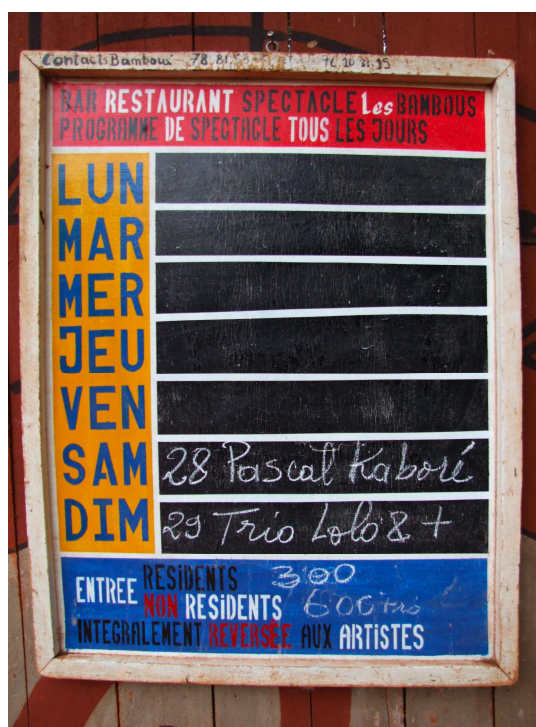 Contacts Bambous 78.81 76 10 31.35
BAR RESTAURANT SPECTACLE Les BAMBOUS
PROGRAMME DE SPECTACLE TOUS LES JOURS
LUN
MAR
MER
JEU
VEN
SAM 28 Pascal Kaboré
DIM 29 Trio Lolo & +
ENTREE RESIDENTS 300
NON RESIDENTS 600 frs
INTEGRALEMENT REVERSÉE AUX ARTISTES